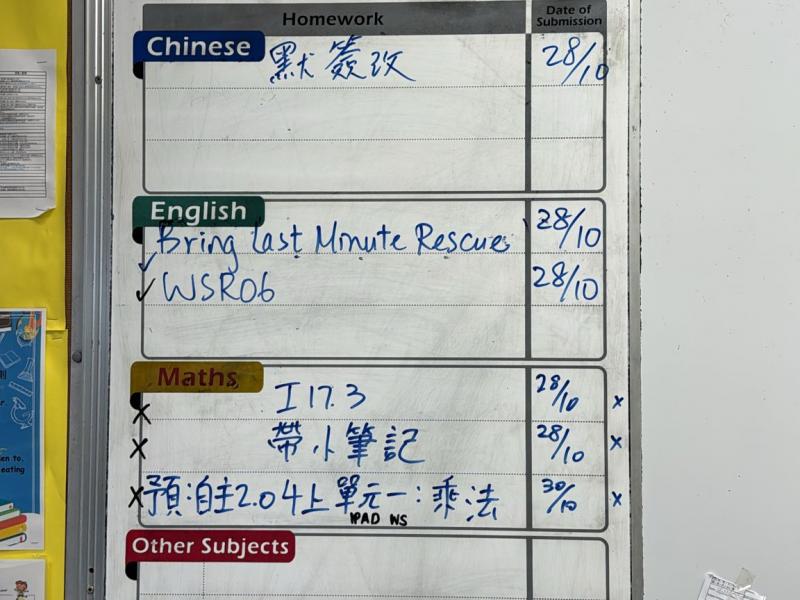 Homework
Date of Submission
Chinese
默簽改 28/10
English
Bring Last Minute Rescues 28/10
✓ WSR06 28/10
Maths
× I 17.3 28/10 ×
× 帶小筆記 28/10 ×
× 預:自主2.0 4上單元一:乘法 30/10 ×
IPAD WS
Other Subjects
en to.
eating